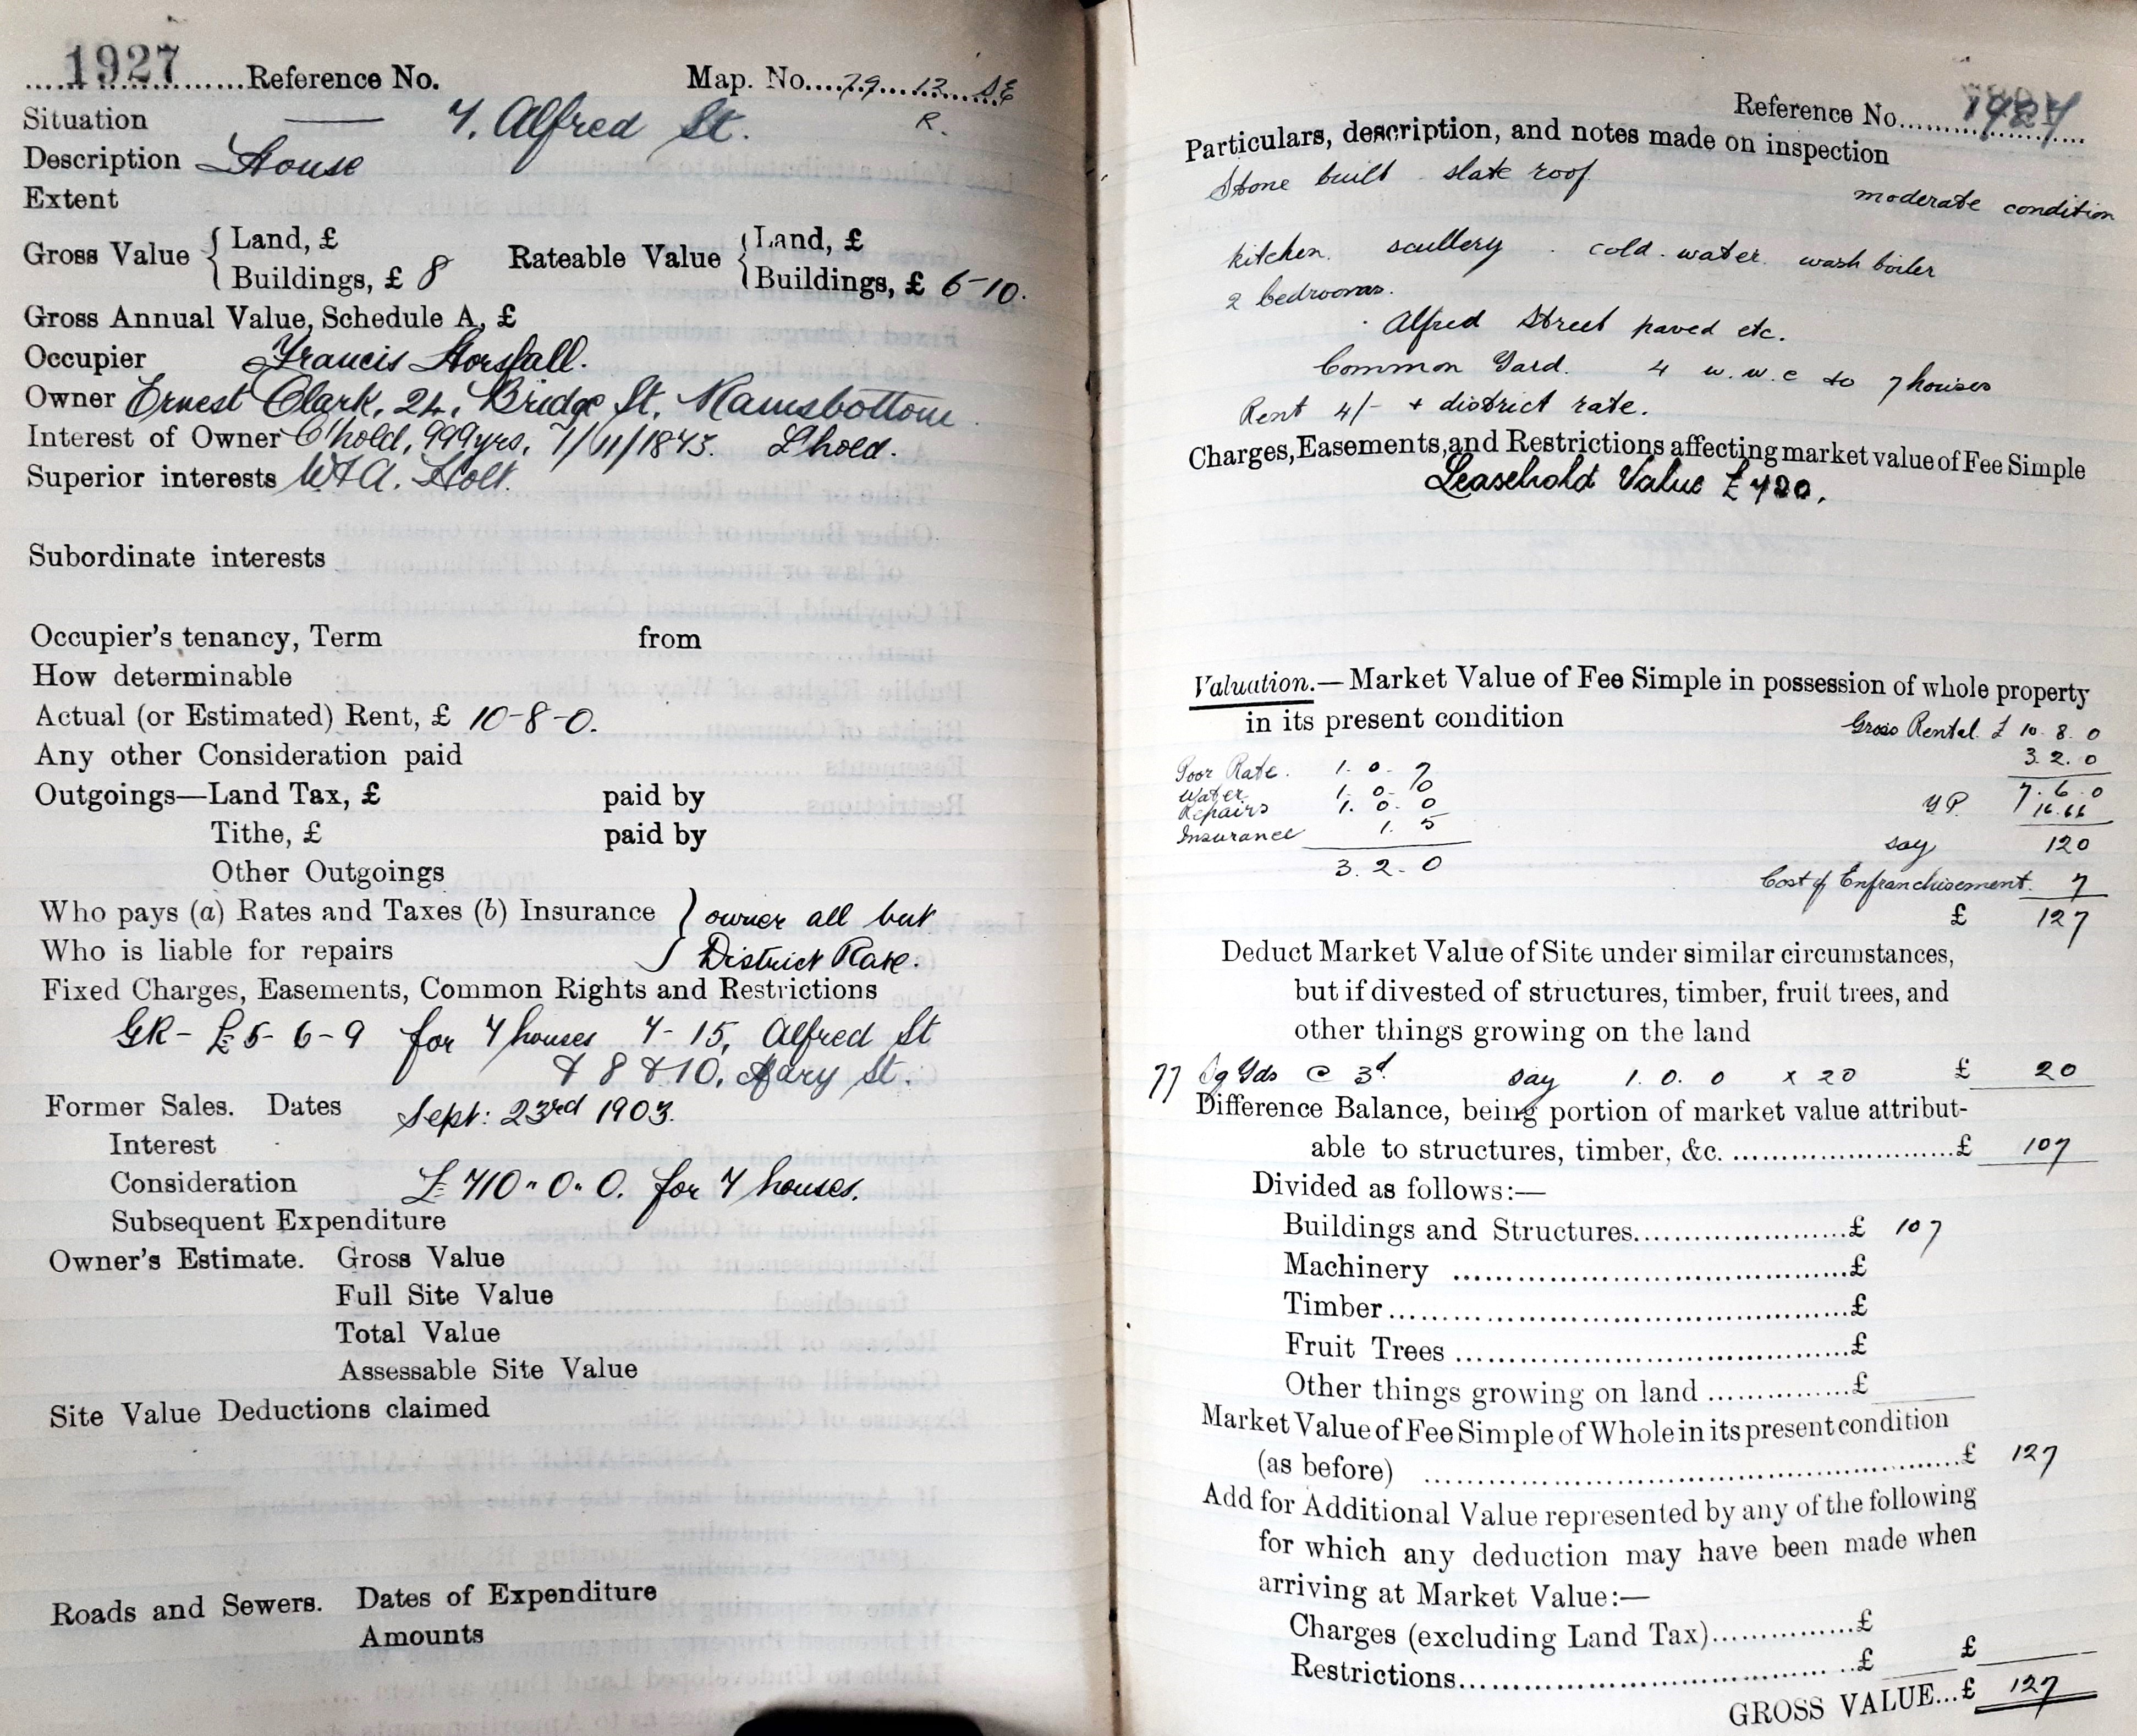 1927 Reference No. Map. No. 79 12 SE
R.
Situation —— 7, Alfred St.
Description House
Extent
Gross Value { Land, £ Rateable Value { Land, £
Buildings, £ 8 Buildings, £ 6-10.
Gross Annual Value, Schedule A, £
Occupier Francis Horsfall.
Owner Ernest Clark, 24, Bridge St, Ramsbottom
Interest of Owner C'hold, 999yrs, 7/11/1873. L'hold.
Superior interests Holt.
Subordinate interests
Occupier's tenancy, Term from
How determinable
Actual (or Estimated) Rent, £ 10-8-0.
Any other Consideration paid
Outgoings—Land Tax, £ paid by
Tithe, £ paid by
Other Outgoings
Who pays (a) Rates and Taxes (b) Insurance } owner all but
Who is liable for repairs } District Rate.
Fixed Charges, Easements, Common Rights and Restrictions
GR- £5-6-9 for 7 houses 7-15, Alfred St
& 8 & 10, Mary St.
Former Sales. Dates Sept: 23rd 1903.
Interest
Consideration £710"0"0. for 7 houses.
Subsequent Expenditure
Owner's Estimate. Gross Value
Full Site Value
Total Value
Assessable Site Value
Site Value Deductions claimed
Roads and Sewers. Dates of Expenditure
Amounts
Reference No. 1927
Particulars, description, and notes made on inspection
Stone built slate roof
moderate condition
kitchen. scullery. cold water. wash boiler
2 bedrooms.
Alfred Street paved etc.
Common Yard. 4 w.w.c to 7 houses
Rent 4/- + district rate.
Charges, Easements, and Restrictions affecting market value of Fee Simple
Leasehold Value £720.
Valuation.— Market Value of Fee Simple in possession of whole property
in its present condition Gross Rental £ 10. 8. 0
3. 2. 0
Poor Rate. 1. 0. 7
Water 1. 0. 0 7. 6. 0
Repairs 1. 0. 0 YP. 16.66
Insurance 1. 5 say 120
3. 2. 0 Cost of Enfranchisement. 7
£ 127
Deduct Market Value of Site under similar circumstances,
but if divested of structures, timber, fruit trees, and
other things growing on the land
77 Sq Yds @ 3d. say 1. 0. 0 x 20 £ 20
Difference Balance, being portion of market value attribut-
able to structures, timber, &c. £ 107
Divided as follows:—
Buildings and Structures £ 107
Machinery £
Timber £
Fruit Trees £
Other things growing on land £
Market Value of Fee Simple of Whole in its present condition
(as before) £ 127
Add for Additional Value represented by any of the following
for which any deduction may have been made when
arriving at Market Value:—
Charges (excluding Land Tax) £
Restrictions £ £
GROSS VALUE...£ 127